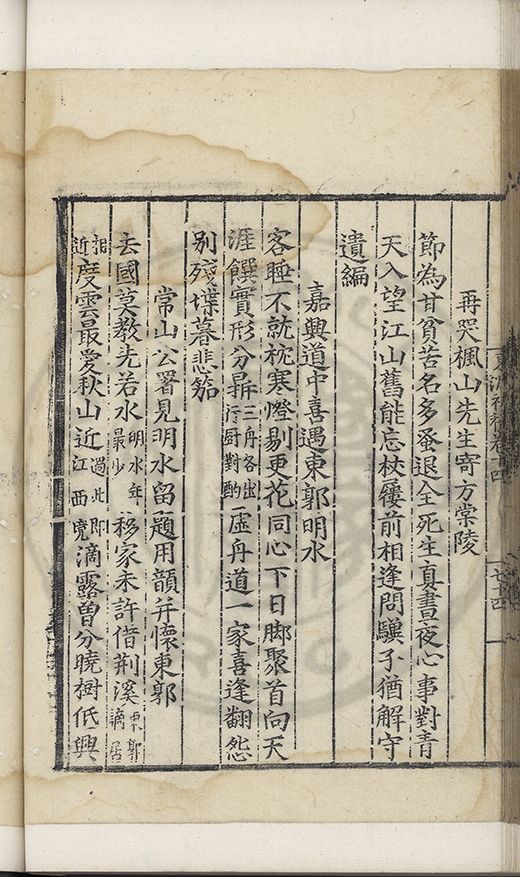 東洲初稿卷十四
七十四
再哭楓山先生寄方棠陵
節為甘貧苦名多蚤退全死生真晝夜心事對青
天入望江山舊能忘杖屨前相逢問驥子猶解守
遺編
嘉興道中喜遇東郭明水
客睡不就枕寒燈剔更花同心下日脚聚首向天
涯饌實形分鼎三舟各出行厨對酌虛舟道一家喜逢翻怨
別殘堞暮悲笳
常山公署見明水留題用韻并懷東郭
去國莫教先若水明水年最少移家未許借荆溪東郭謫居
相近度雲最愛秋山近過此即江西竟滴露曾分曉樹低興